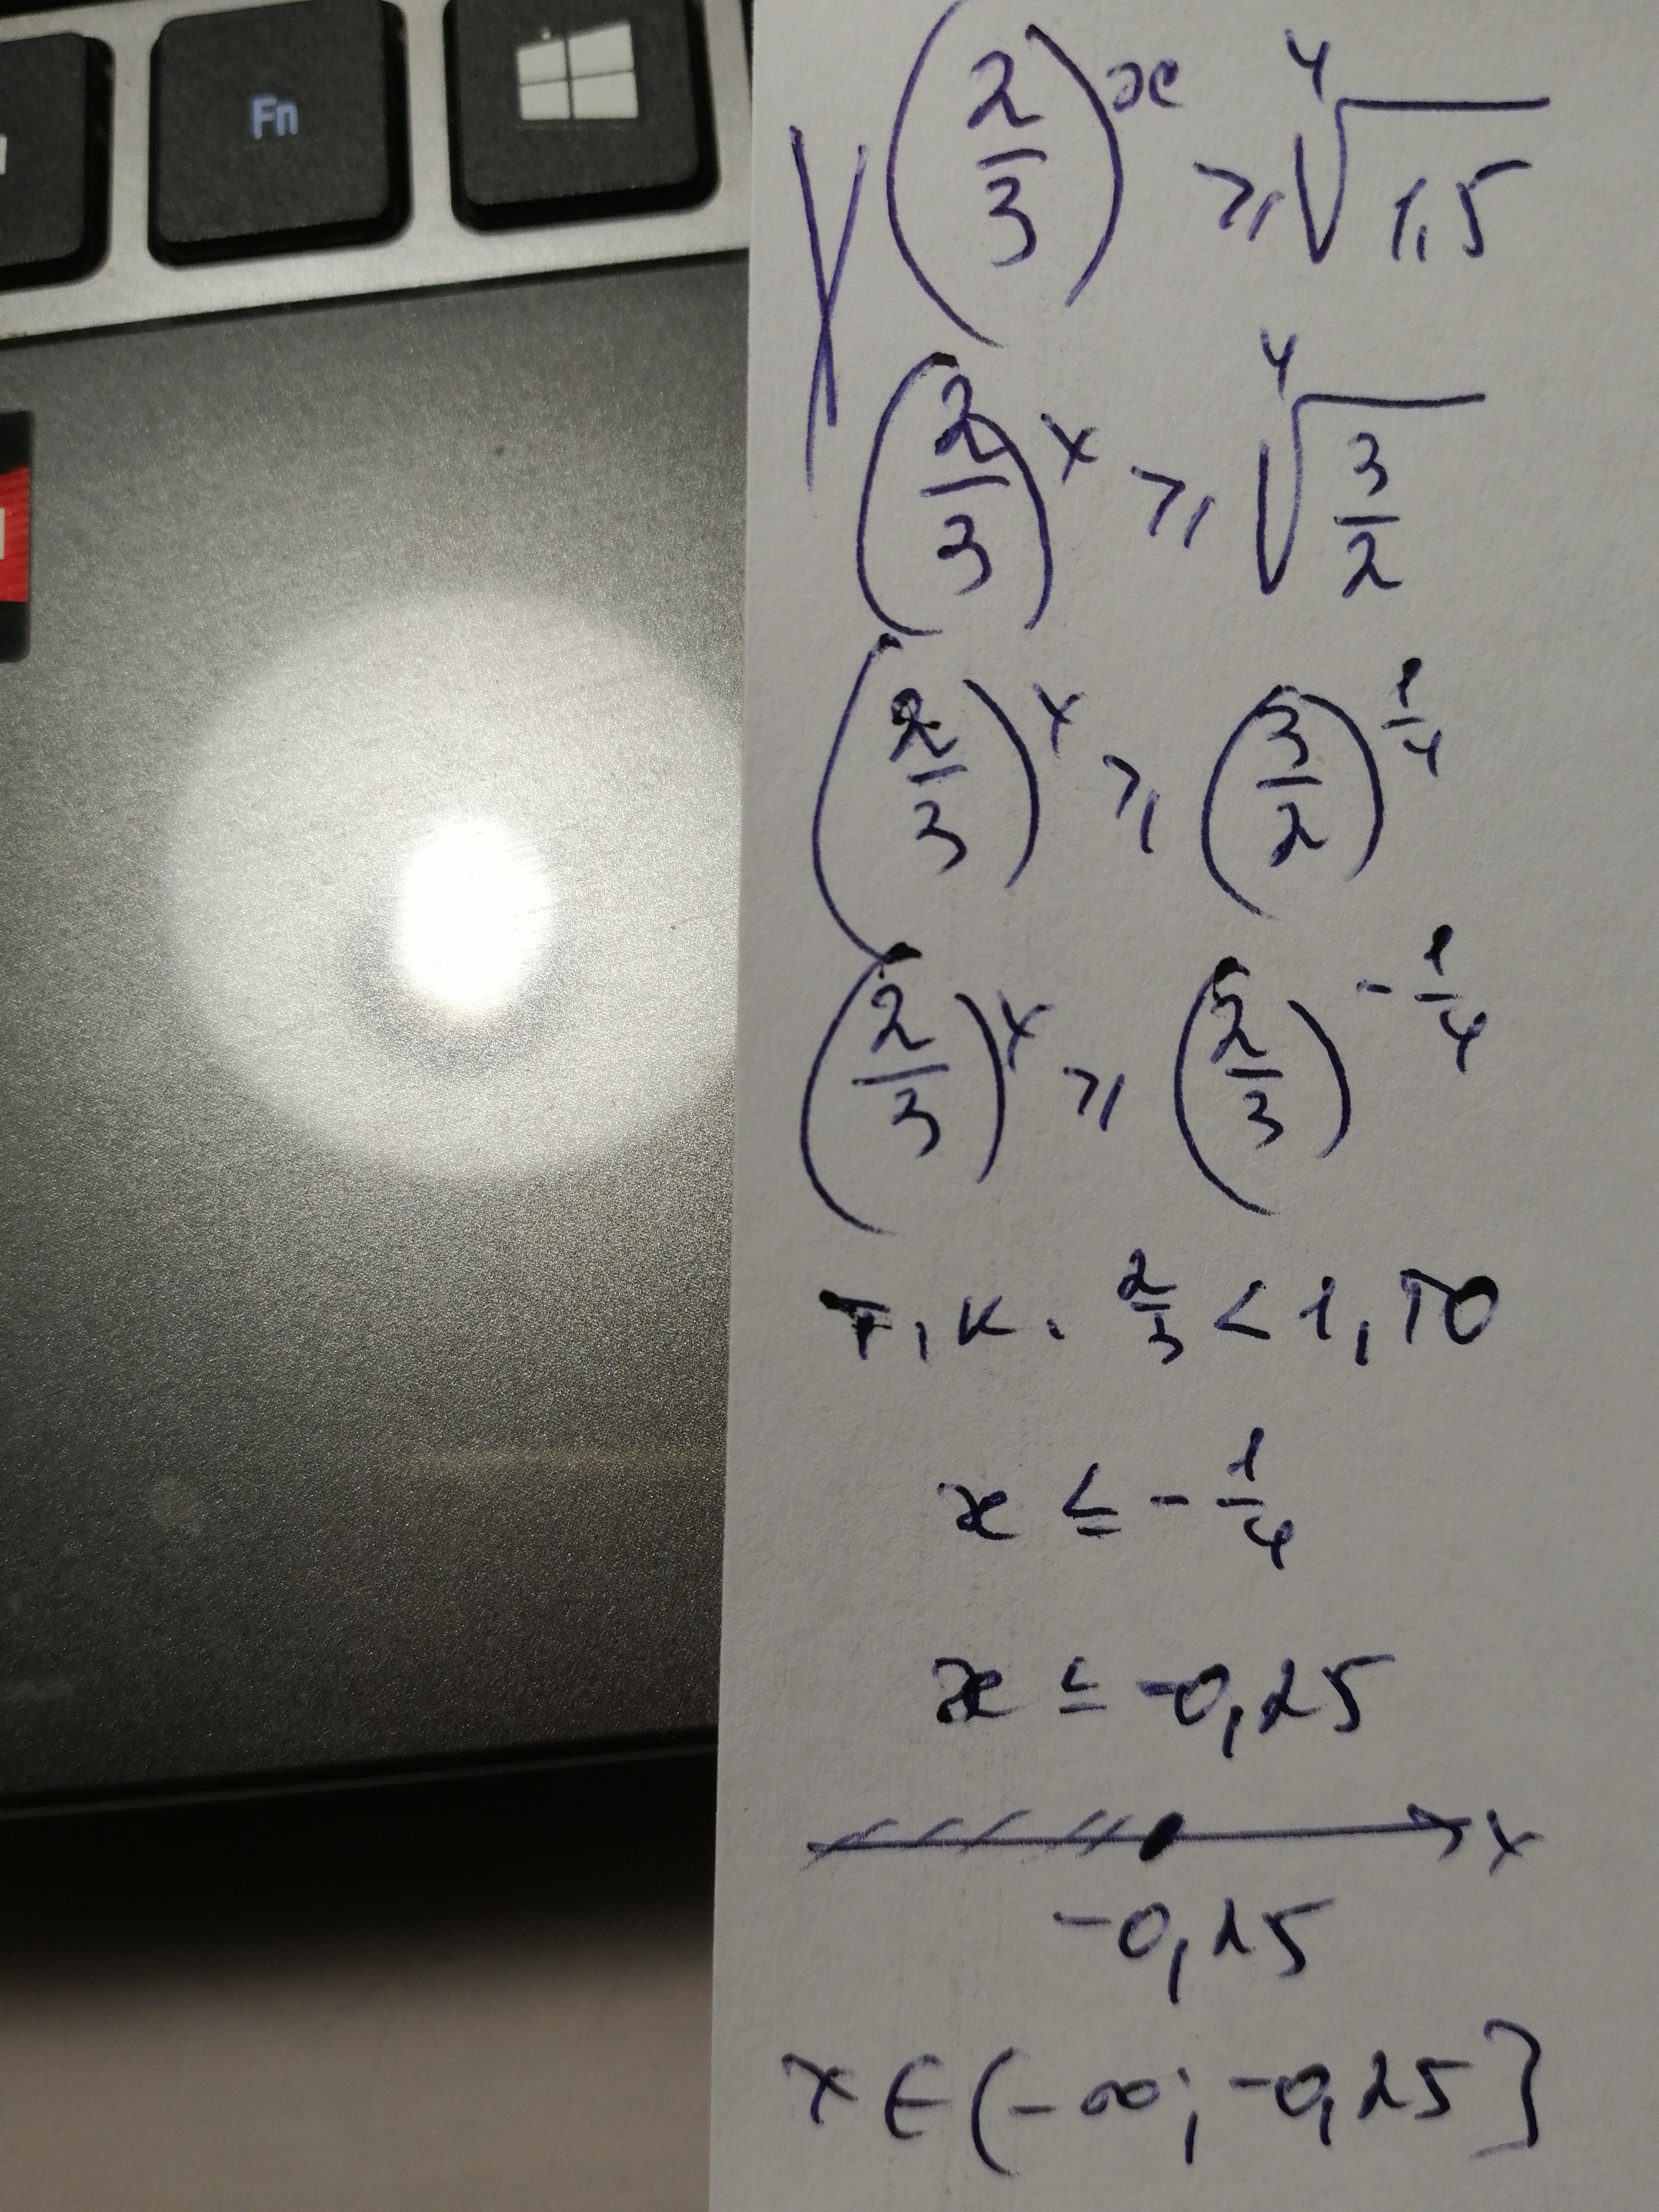 Fn
(2/3)^x ⩾ ⁴√1,5
(2/3)^x ⩾ ⁴√(3/2)
(2/3)^x ⩾ (3/2)^(1/4)
(2/3)^x ⩾ (2/3)^(-1/4)
т.к. 2/3 < 1, то
x ≤ -1/4
x ≤ -0,25
x
-0,25
x ∈ (-∞; -0,25]